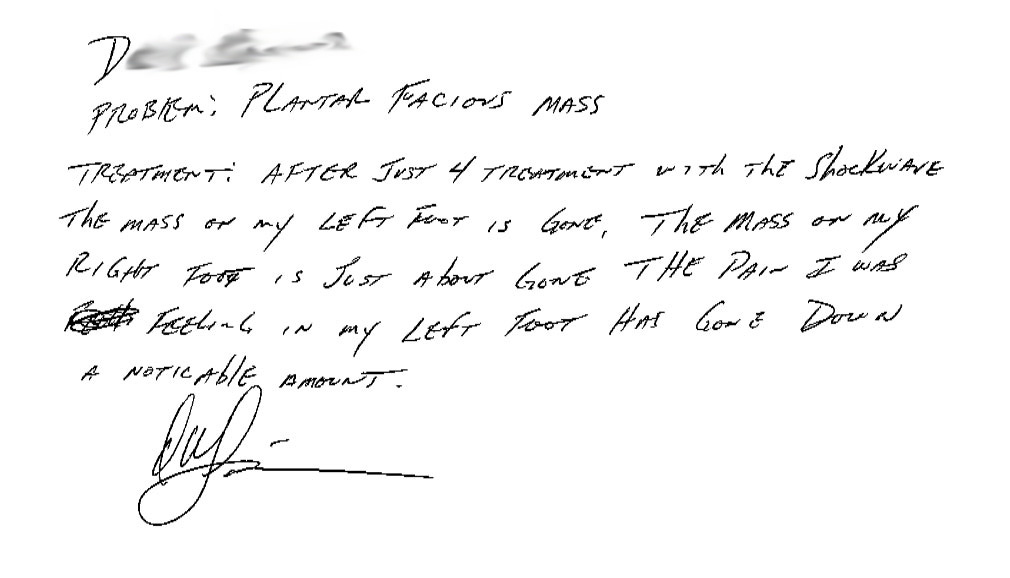 D
PROBLEM: PLANTAR FACIOUS MASS
TREATMENT: AFTER JUST 4 TREATMENT WITH THE SHOCKWAVE
THE MASS ON MY LEFT FOOT IS GONE. THE MASS ON MY
RIGHT FOOT IS JUST ABOUT GONE THE PAIN I WAS
FEELING IN MY LEFT FOOT HAS GONE DOWN
A NOTICABLE AMOUNT.